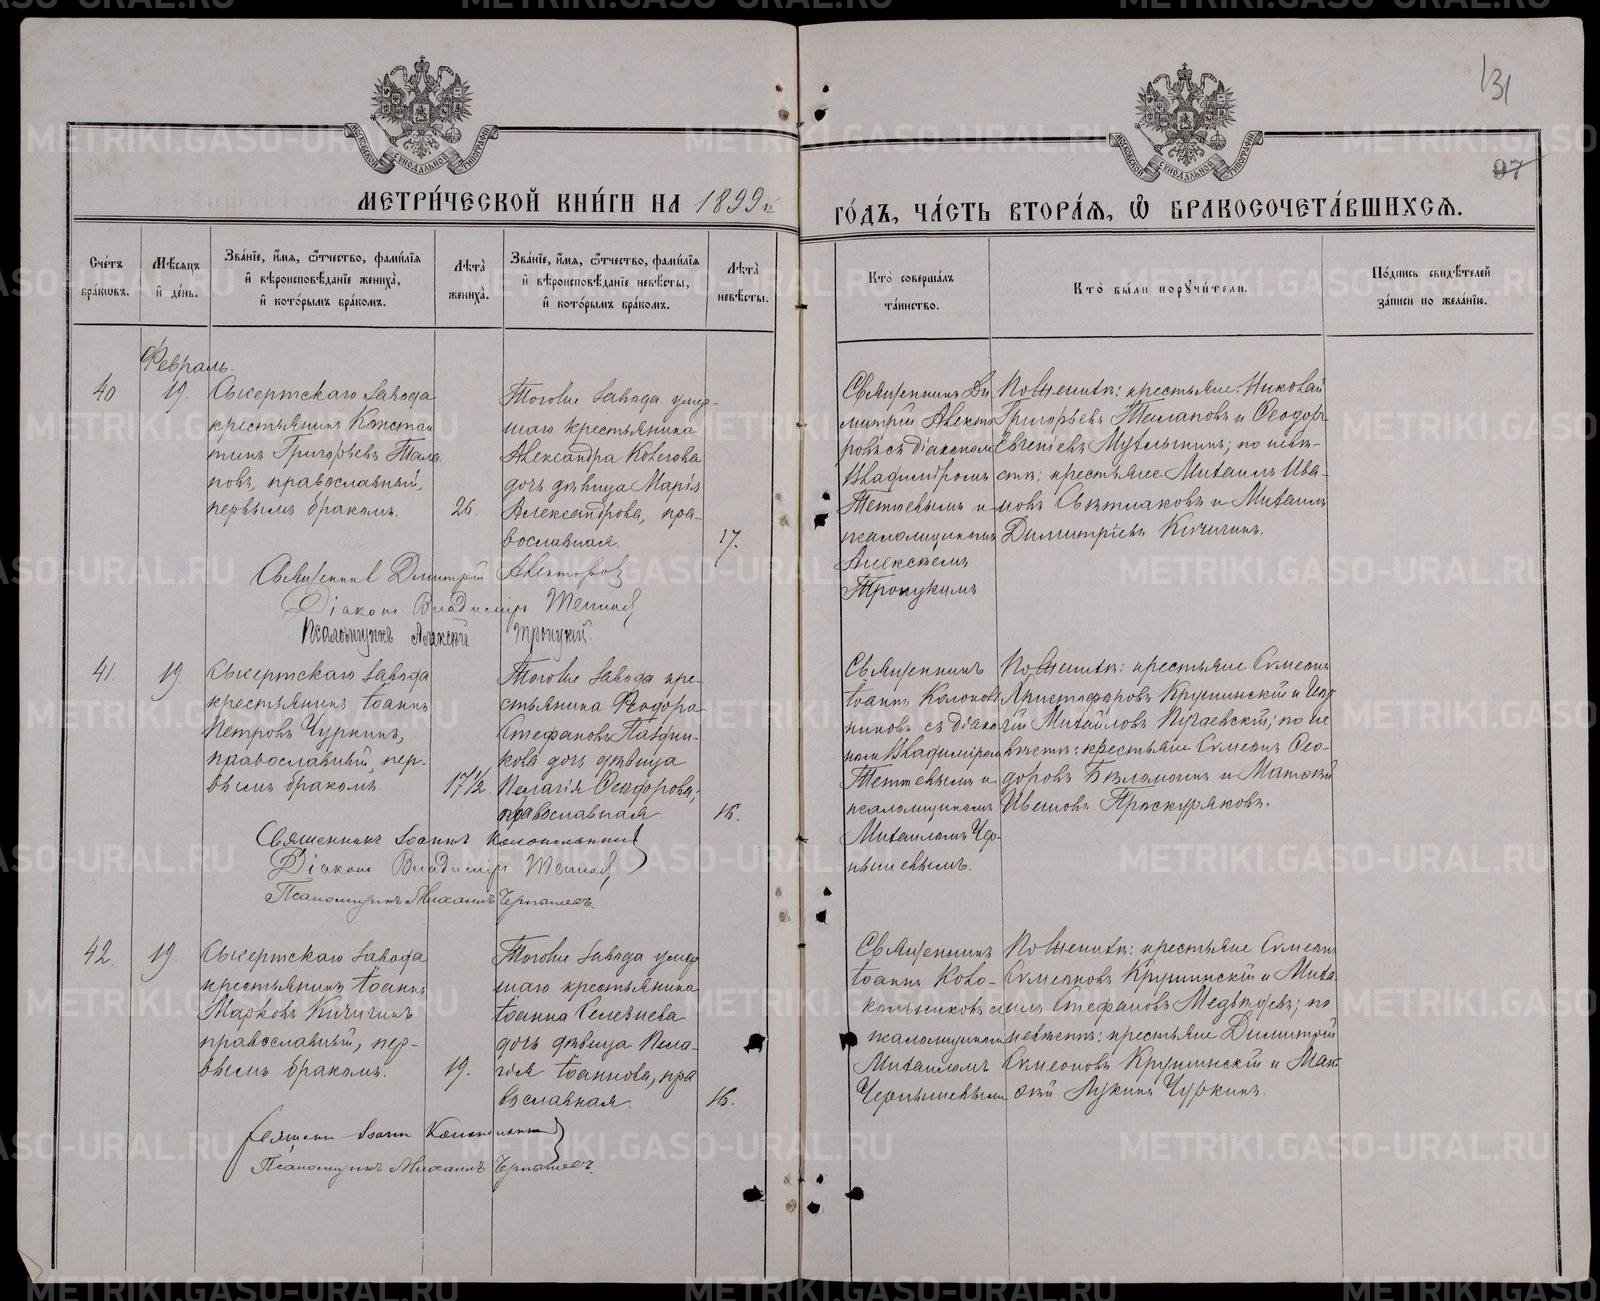 131
97
МЕТРИ́ЧЕСКОЙ КНИ́ГИ НА 1899й
ГО́ДЪ, ЧА́СТЬ ВТОРА́Я, Ѡ҆ БРАКОСОЧЕТА́ВШИХСЯ.
Сче́тъ бра́ковъ.
Мѣ́сяцъ и҆ де́нь.
Зва́нїе, и҆́мя, ѻ҆́тчество, фами́лїя
и҆ вѣроисповѣ́данїе жениха̀,
и҆ кото́рымъ бра́комъ.
Лѣта̀ жениха̀.
Зва́нїе, и҆́мя, ѻ҆́тчество, фами́лїя
и҆ вѣроисповѣ́данїе невѣ́сты,
и҆ кото́рымъ бра́комъ.
Лѣта̀ невѣ́сты.
Кто̀ соверша́лъ
та́инство.
Кто̀ бы́ли поручи́тели.
По́дпись свидѣ́телей
за́писи по жела́нїю.
Февраль.
40
19.
Сысертскаго завода
крестьянинъ Констан
тинъ Григорьевъ Тала
новъ, православный,
первымъ бракомъ.
26.
Тогоже завода умер-
шаго крестьянина
Александра
дочь дѣвица Марія
Александрова, пра-
вославная.
17.
Священникъ Ди
митрій
ровъ съ діакономъ
Владиміромъ
и
псаломщикомъ
Алексѣемъ
Троицкимъ
По женихѣ: крестьяне: Николай
Григорьевъ Талановъ и Ѳеодоръ
Евгеніевъ; по невѣ-
стѣ: крестьяне Михаилъ Ива-
новъ Свѣтлаковъ и Михаилъ
Димитріевъ Кичигинъ.
Священникъ Димитрій
Діаконъ Владиміръ
Псаломщикъ Алексѣй Троицкій.
41.
19.
Сысертскаго завода
крестьянинъ Іоаннъ
Петровъ Чуркинъ,
православный, пер-
вымъ бракомъ.
17½.
Тогоже завода кре-
стьянина Ѳеодора
Стефанова
дочь дѣвица
Пелагія Ѳеодорова,
православная.
16.
Священникъ
Іоаннъ Колоколь
никовъ съ діако
номъ Владиміромъ
и
псаломщикомъ
Михаиломъ Чер-
нышевымъ.
По женихѣ: крестьяне Симеонъ
Христофоровъ Крушинскій и
Михайловъ; по не
вѣстѣ: крестьяне Симеонъ Ѳео-
доровъ и Матѳей
Проскуряковъ.
Священникъ Іоаннъ Колокольниковъ
Діаконъ Владиміръ
Псаломщикъ Михаилъ Чернышевъ.
42.
19.
Сысертскаго завода
крестьянинъ Іоаннъ
Марковъ Кичигинъ
православный, пер-
вымъ бракомъ.
19.
Тогоже завода умер
шаго крестьянина
Іоанна Селезнева
дочь дѣвица Пела-
гія Іоаннова, пра
вославная.
16.
Священникъ
Іоаннъ Коло-
кольниковъ съ
псаломщикомъ
Михаиломъ
Чернышевымъ
По женихѣ: крестьяне Симеонъ
Симеоновъ Крушинскій и Миха-
илъ Стефановъ Медвѣдевъ; по
невѣстѣ: крестьяне Димитрій
Симеоновъ Крушинскій и Мат-
ѳей Лукинъ Чуркинъ.
Священникъ Іоаннъ Колокольниковъ
Псаломщикъ Михаилъ Чернышевъ.
METRIKI.GASO-URAL.RU